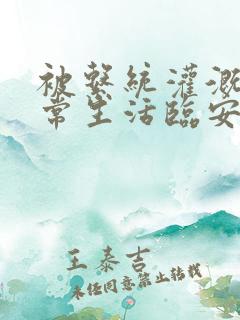 被系統灌溉
常生活臨安
王泰吉
未經同意禁止轉載